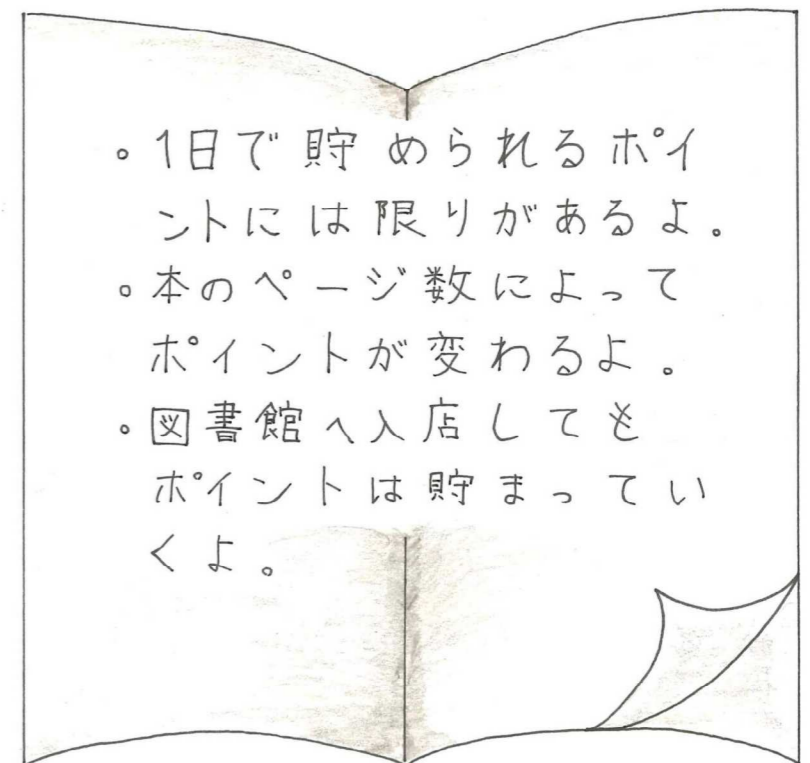 。1日で貯められるポイ
ントには限りがあるよ。
。本のページ数によって
ポイントが変わるよ。
。図書館へ入店しても
ポイントは貯まってい
くよ。